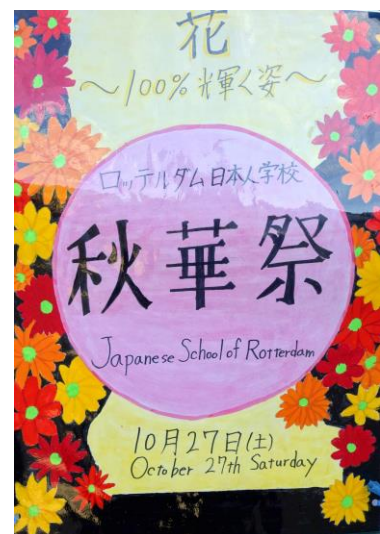 花
～100%輝く姿～
ロッテルダム日本人学校
秋華祭
Japanese School of Rotterdam
10月27日(土)
October 27th Saturday